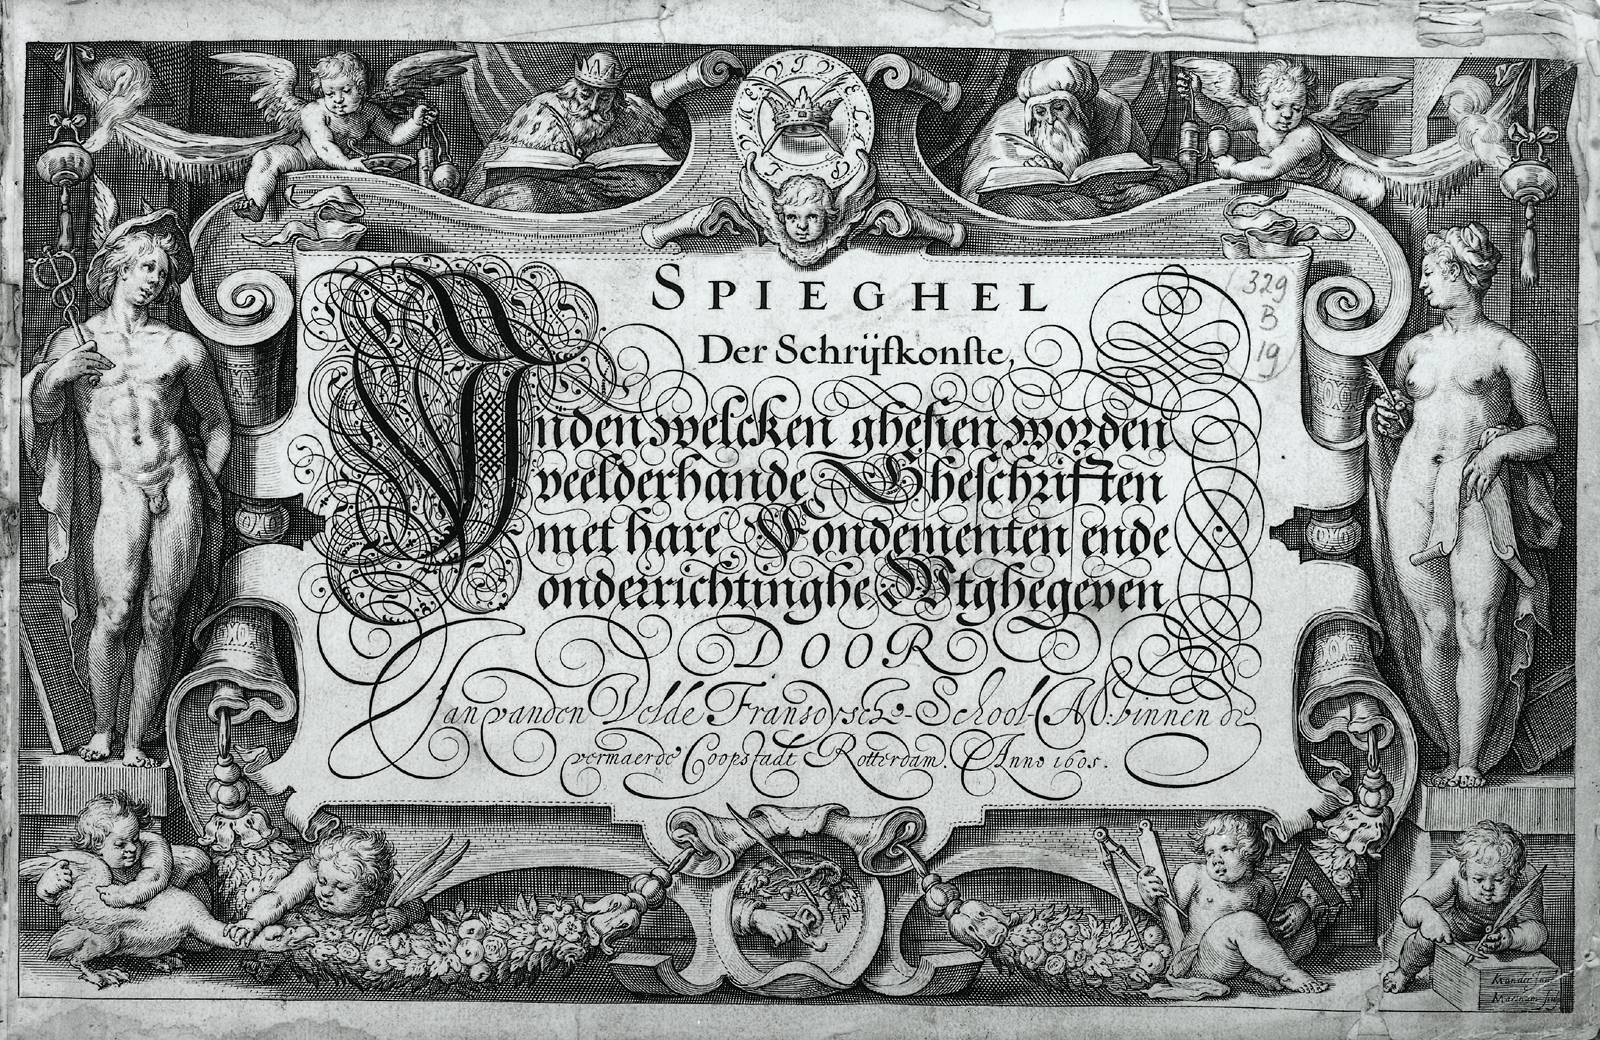 VIVE LA PLVME
SPIEGHEL
Der Schrijfkonste,
Inden welcken ghesien worden
veelderhande Gheschriften
met hare Fondementen ende
onderrichtinghe Wtghegeven
DOOR
Jan vanden Velde Fransoysche-School-M: binnen de
vermaerde Coopstadt Rotterdam. Anno 1605.
329
B
19